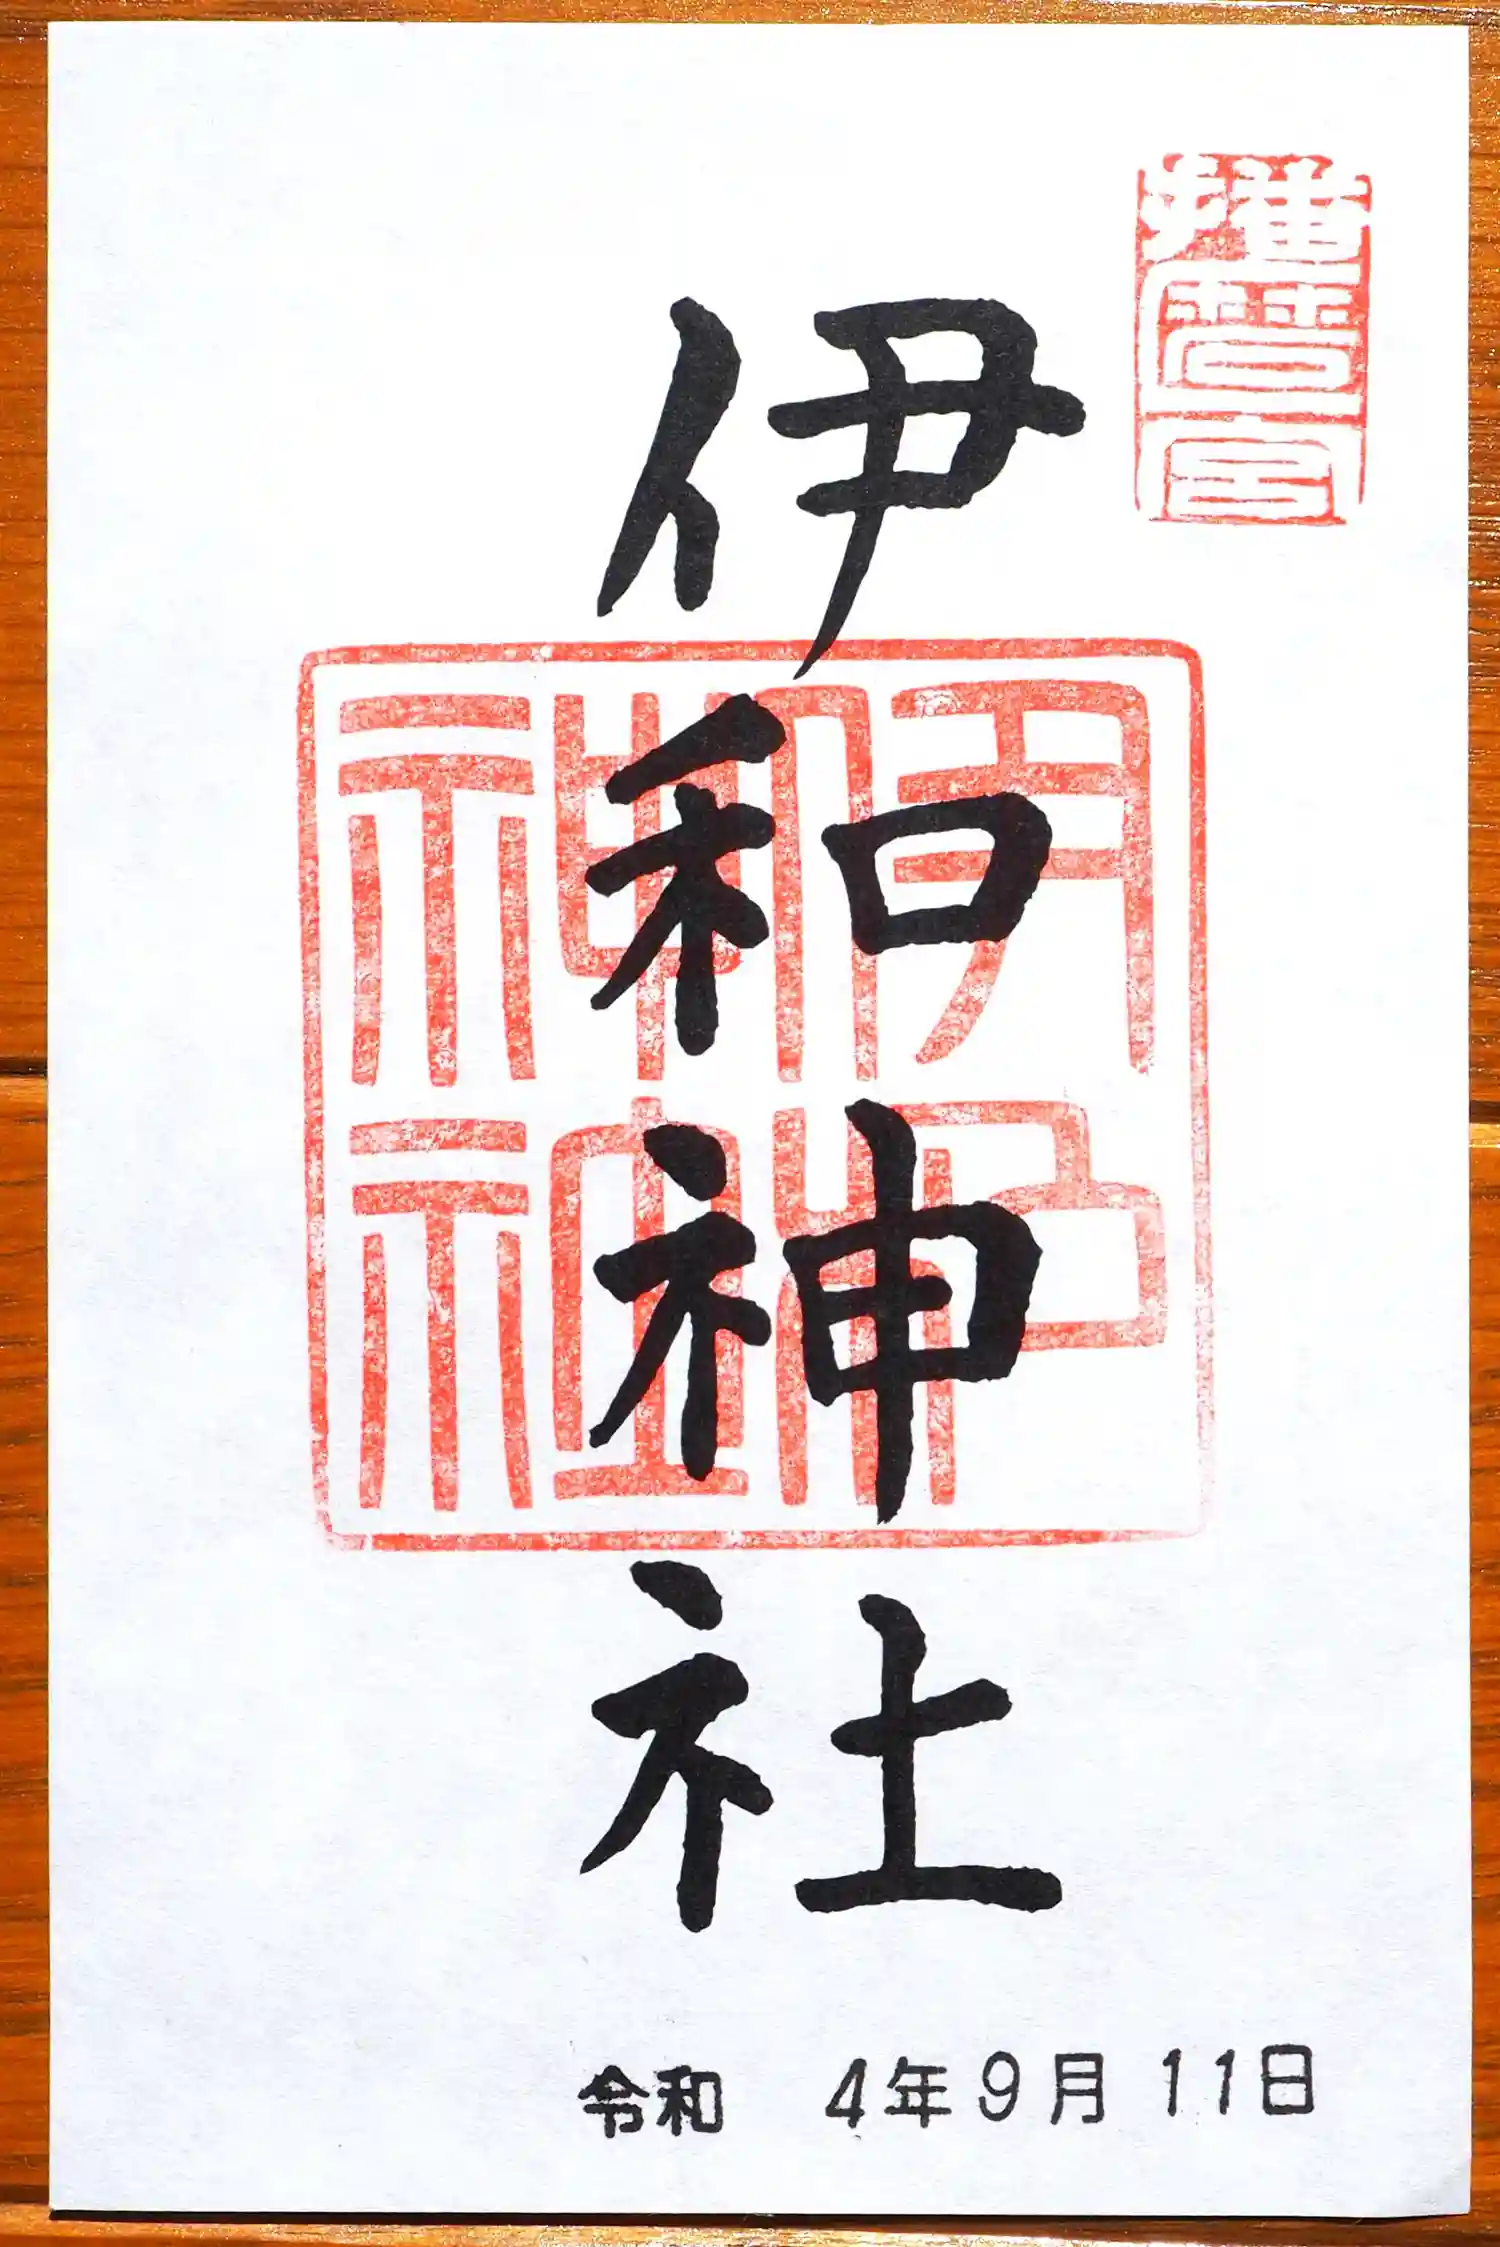 播磨一宮
伊和神社
伊和
神社
令和 4年9月11日